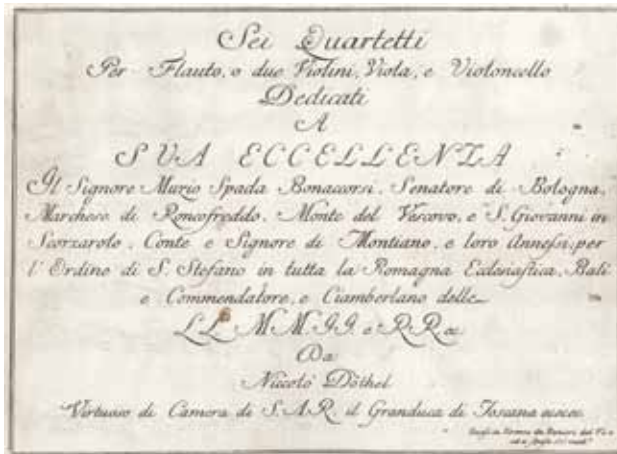 Sei Quartetti
Per Flauto, o due Violini, Viola, e Violoncello
Dedicati
A
SUA ECCELLENZA
Il Signore Muzio Spada Bonaccorsi, Senatore di Bologna,
Marchese di Roncofreddo, Monte del Vescovo, e S. Giovanni in
Scorzarolo, Conte e Signore di Montiano, e loro Annessi, per
l'Ordine di S. Stefano in tutta la Romagna Ecclesiastica, Balì
e Commendatore, e Ciamberlano delle
LL MM. II. e RR. ec
Da
Niccolò Dôthel
Virtuoso di Camera di S.A.R. il Granduca di Toscana
in Firenze da Ranieri del Vivo